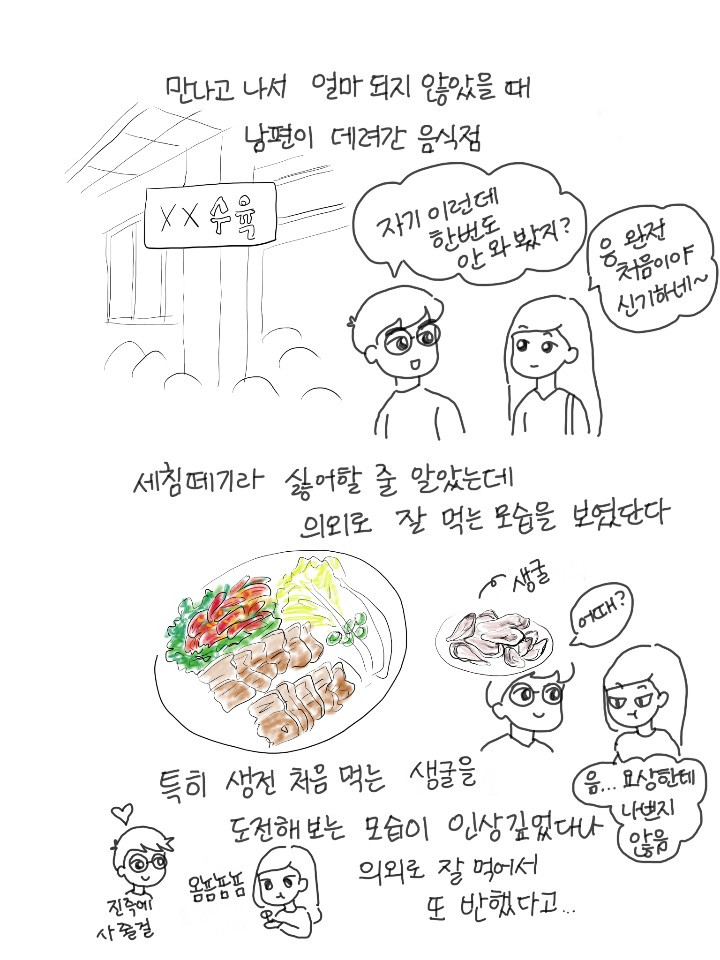 만나고 나서 얼마 되지 않았을 때
남편이 데려간 음식점
XX 수육
자기 이런데
한번도
안 와 봤지?
응 완전
처음이야
신기하네~
세침떼기라 싫어할 줄 알았는데
의외로 잘 먹는 모습을 보였단다
생굴
어때?
음... 요상한테
나쁘지
않음
특히 생전 처음 먹는 생굴을
도전해보는 모습이 인상깊었다나
의외로 잘 먹어서
또 반했다고...
진즉에
사줄걸
옴픔픔픔